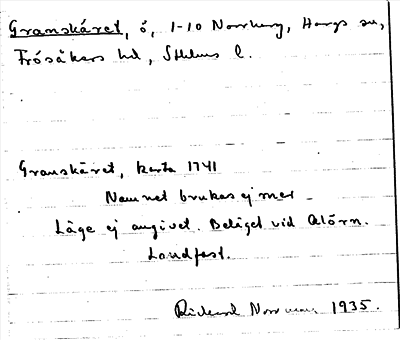 Granskäret, ö, 1-10 Norrberg, Hargs sn,
Frösåkers hd, Sthlms l.
Granskäret, karta 1741
Namnet brukas ej mer
Läge ej angivet. Beläget vid Alörn.
Landfast.
Rickard Norrman 1935.